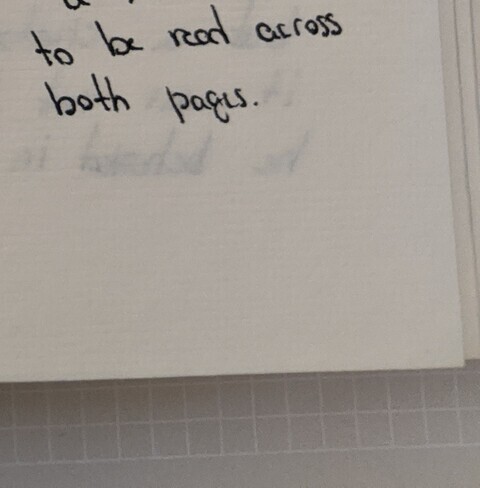 to be read across
both pages.